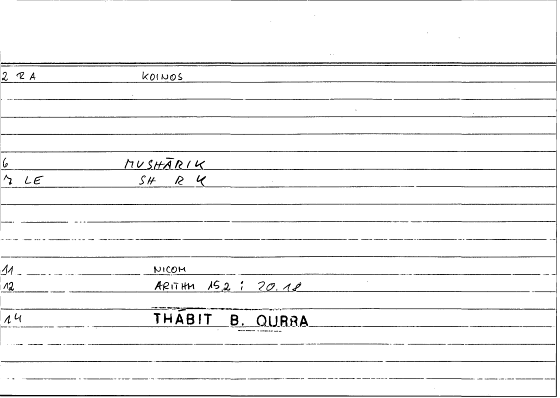 2 RA KOINOS
6 MUSHĀRIK
7 LE SH R K
11 NICOM
12 ARITHM 15,2 : 20.18
14 THĀBIT B. QURRA